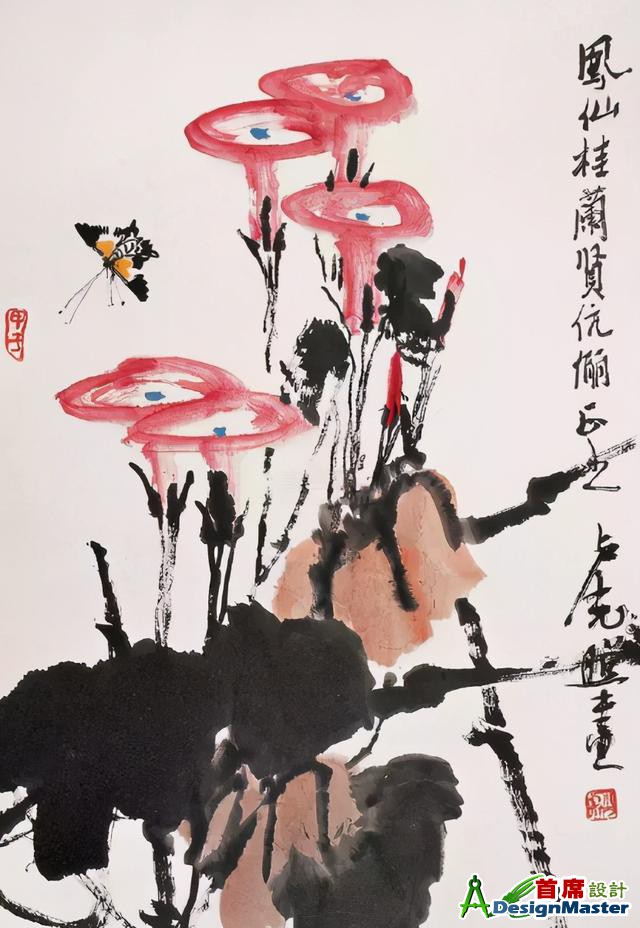 鳳仙桂蘭贤伉俪正之
卢光照畫
甲子
首席設計
DesignMaster